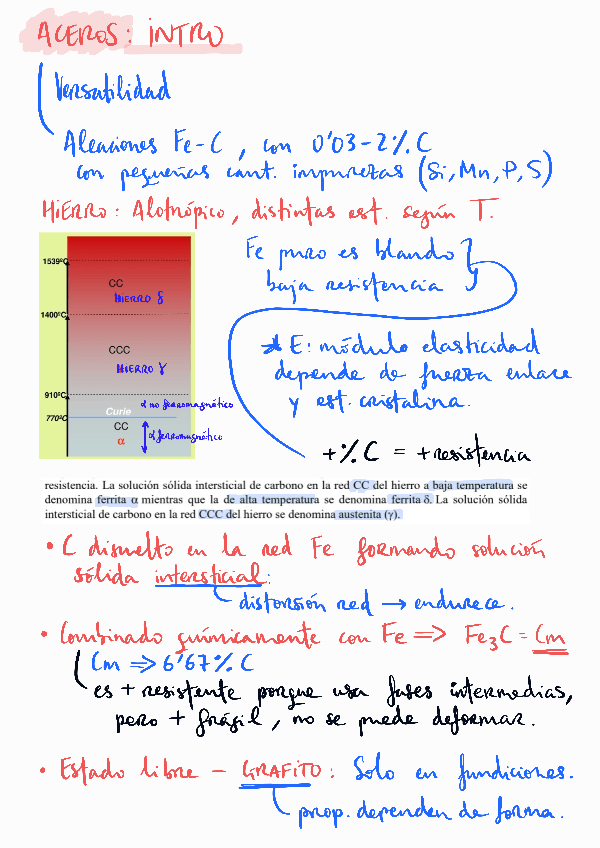 ACEROS: INTRO
Versatilidad
Aleaciones Fe-C, con 0'03-2% C
con pequeñas cant. impurezas (Si, Mn, P, S)
HiERRO: Alotrópico, distintas est. según T.
Fe puro es blando
baja resistencia
1539ºC
CC
HIERRO δ
1400ºC
CCC
HIERRO γ
910ºC
α no ferromagnético
Curie
770ºC
CC
α
α ferromagnético
* E: módulo elasticidad
depende de fuerza enlace
y est. cristalina.
+% C = + resistencia
resistencia. La solución sólida intersticial de carbono en la red CC del hierro a baja temperatura se
denomina ferrita α mientras que la de alta temperatura se denomina ferrita δ. La solución sólida
intersticial de carbono en la red CCC del hierro se denomina austenita (γ).
• C disuelto en la red Fe formando solución
sólida intersticial:
distorsión red → endurece.
• Combinado químicamente con Fe => Fe3C = Cm
Cm => 6'67% C
es + resistente porque usa fases intermedias,
pero + frágil, no se puede deformar.
• Estado libre - GRAFITO: Solo en fundiciones.
prop. dependen de forma.